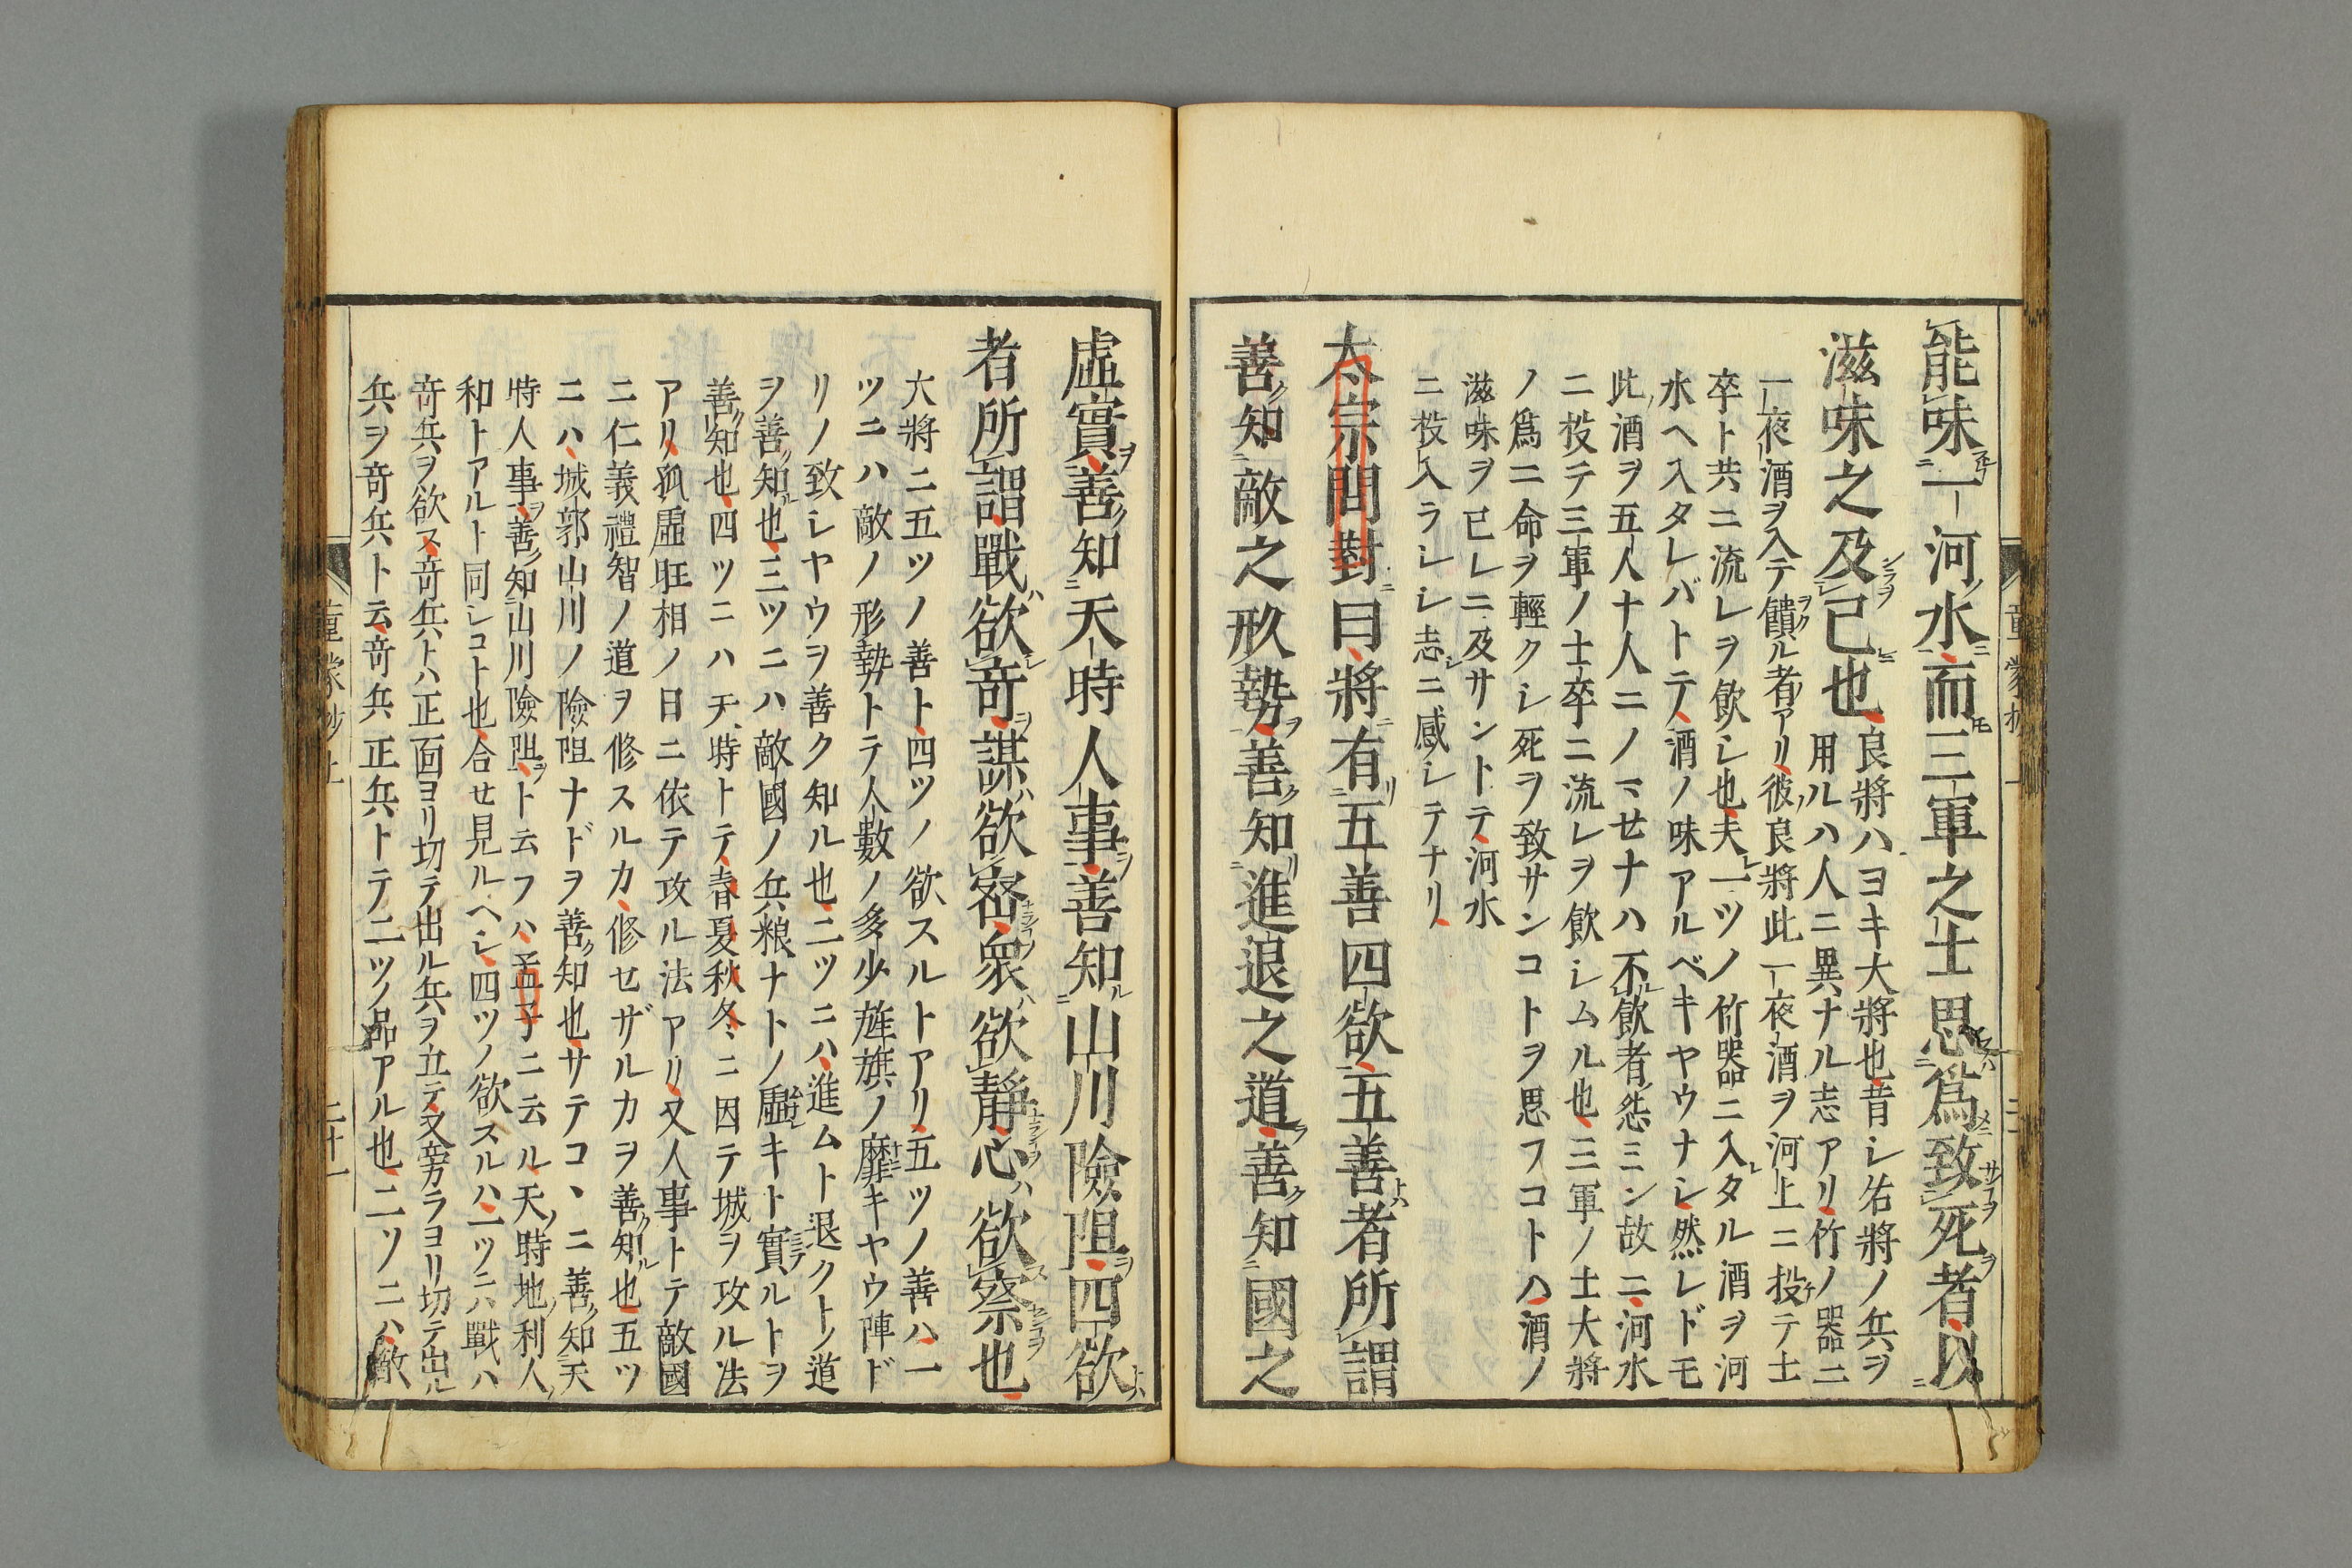 能味一河水而三軍之士思爲致死者以
滋味之及己也良將ハヨキ大將也昔シ佑將ノ兵ヲ
用ルハ人ニ異ナル志アリ竹ノ器ニ
一夜酒ヲ入テ饋ル者アリ彼良將此一夜酒ヲ河上ニ投テ士
卒ト共ニ流レヲ飲シ也夫一ツノ竹器ニ入タル酒ヲ河
水ヘ入タレバトテ酒ノ味アルベキヤウナシ然レドモ
此酒ヲ五人十人ニノマセナハ不飲者怨ミン故ニ河水
ニ投テ三軍ノ士卒ニ流レヲ飲シムル也三軍ノ士大將
ノ爲ニ命ヲ輕クシ死ヲ致サンコトヲ思フコトハ酒ノ
滋味ヲ已レニ及サントテ河水
ニ投入ラレシ志ニ感シテナリ
太宗問對曰將有五善四欲五善者所謂
善知敵之形勢善知進退之道善知國之
虚實善知天時人事善知山川險阻四欲
者所謂戰欲奇謀欲密衆欲靜心欲察也
大將ニ五ツノ善ト四ツノ欲スルトアリ五ツノ善ハ一
ツニハ敵ノ形勢トテ人數ノ多少旌旗ノ靡キヤウ陣ド
リノ致シヤウヲ善ク知ル也二ツニハ進ムト退クトノ道
ヲ善知也三ツニハ敵國ノ兵粮ナトノ虚キト實ルトヲ
善知也四ツニハ天時トテ春夏秋冬ニ因テ城ヲ攻ル法
アリ孤虚旺相ノ日ニ依テ攻ル法アリ又人事トテ敵國
ニ仁義禮智ノ道ヲ修スルカ修セザルカヲ善知也五ツ
ニハ城郭山川ノ險阻ナドヲ善知也サテコヽニ善知天
時人事善知山川險阻ト云フハ孟子ニ云ル天時地利人
和トアルト同シコト也合セ見ルヘシ四ツノ欲スルハ一ツニハ戰ハ
奇兵ヲ欲ス奇兵トハ正面ヨリ切テ出ル兵ヲ立テ又旁ラヨリ切テ出ル
兵ヲ奇兵ト云奇兵正兵トテ二ツノ品アル也二ツニハ敵
童蒙抄上
二十一